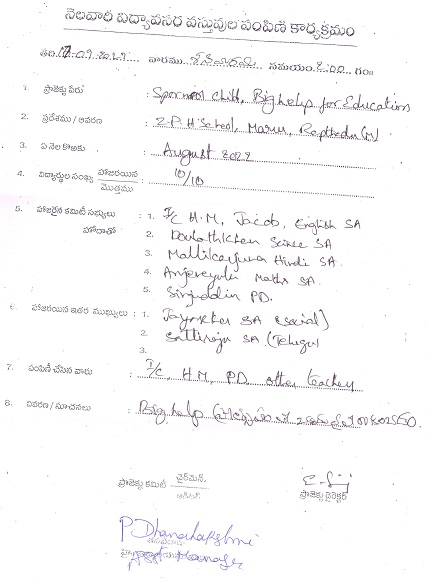 నెలవారి విద్యావసర వస్తువుల పంపిణి కార్యక్రమం
తేది: 17-09-2022 వారము శనివారము సమయం: 2:00 గం॥
1. ప్రాజెక్టు పేరు : Sponsor child, Big help for Education
2. ప్రదేశము / ఆవరణ : Z.P.H School, Marur, Rapthadu (M)
3. ఏ నెల కొఱకు : August 2022
4. విద్యార్థుల సంఖ్య హాజరయిన / మొత్తము : 10/10
5. హాజరైన కమిటీ సభ్యులు : 1. I/c H.M, Jacob, English SA
హోదాతో 2. Doulathkhan Science SA
3. Mallikarjuna Hindi SA.
4. Anjaneyulu Maths SA.
5. Sirajuddin PD.
6. హాజరయిన ఇతర ముఖ్యులు : 1. SA (Social)
2. SA (Telugu)
3.
7. పంపిణీ చేసిన వారు : I/c, H.M, PD other teacher
8. వివరణ / సూచనలు : Big help
ప్రాజెక్టు కమిటీ చైర్మెన్.
ప్రాజెక్టు డైరెక్టర్
P Dhanalakshmi
Manager